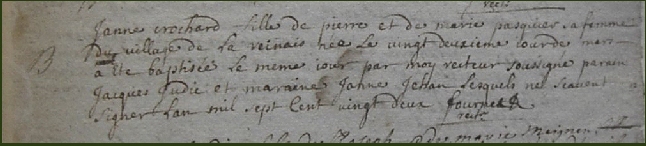 recte
Janne crochard fille de pierre et de marie pasquer sa femme
13 du village de la reinais née le vingt deuxieme iour de mars
a ete baptisée le meme iour par moy recteur soussigne parain
Jacques Judic et maraine Janne Jehan lesquels ne scavent
signer lan mil sept cent vingt deux fournel
recte
fille de Joseph du marie